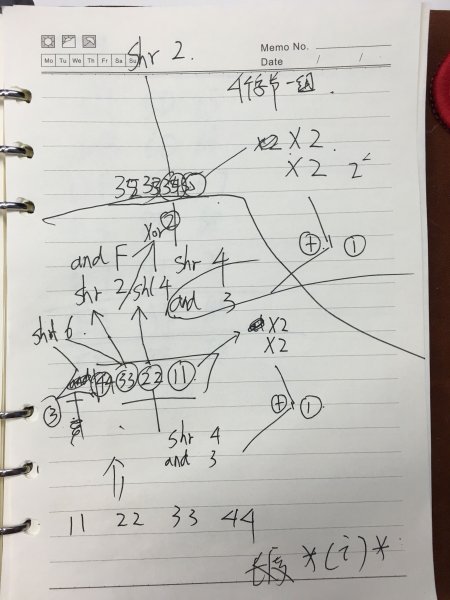 shr 2.
Memo No.
Mo Tu We Th Fr Sa Su
Date / /
4个字节一组
X2
X2 2²
xor 2
+ 1
and F shr 4
shr 2 shl 4 and 3
shr 6
X2
X2
44 33 22 11
3
+ 1
shr 4
and 3
11 22 33 44
*(i)*